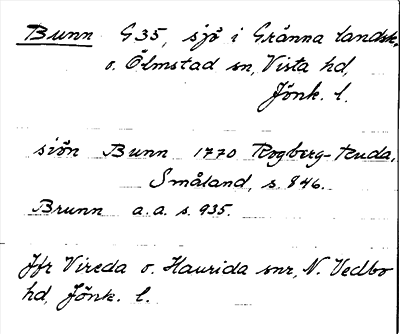 Bunn G35, sjö i Gränna landsk.
o. Ölmstad sn, Vista hd,
Jönk. l.
siön Bunn 1770 Rogberg-Ruda,
Småland, s. 846.
Brunn a.a. s. 935.
Jfr Vireda o. Haurida snr, N. Vedbo
hd, Jönk. l.